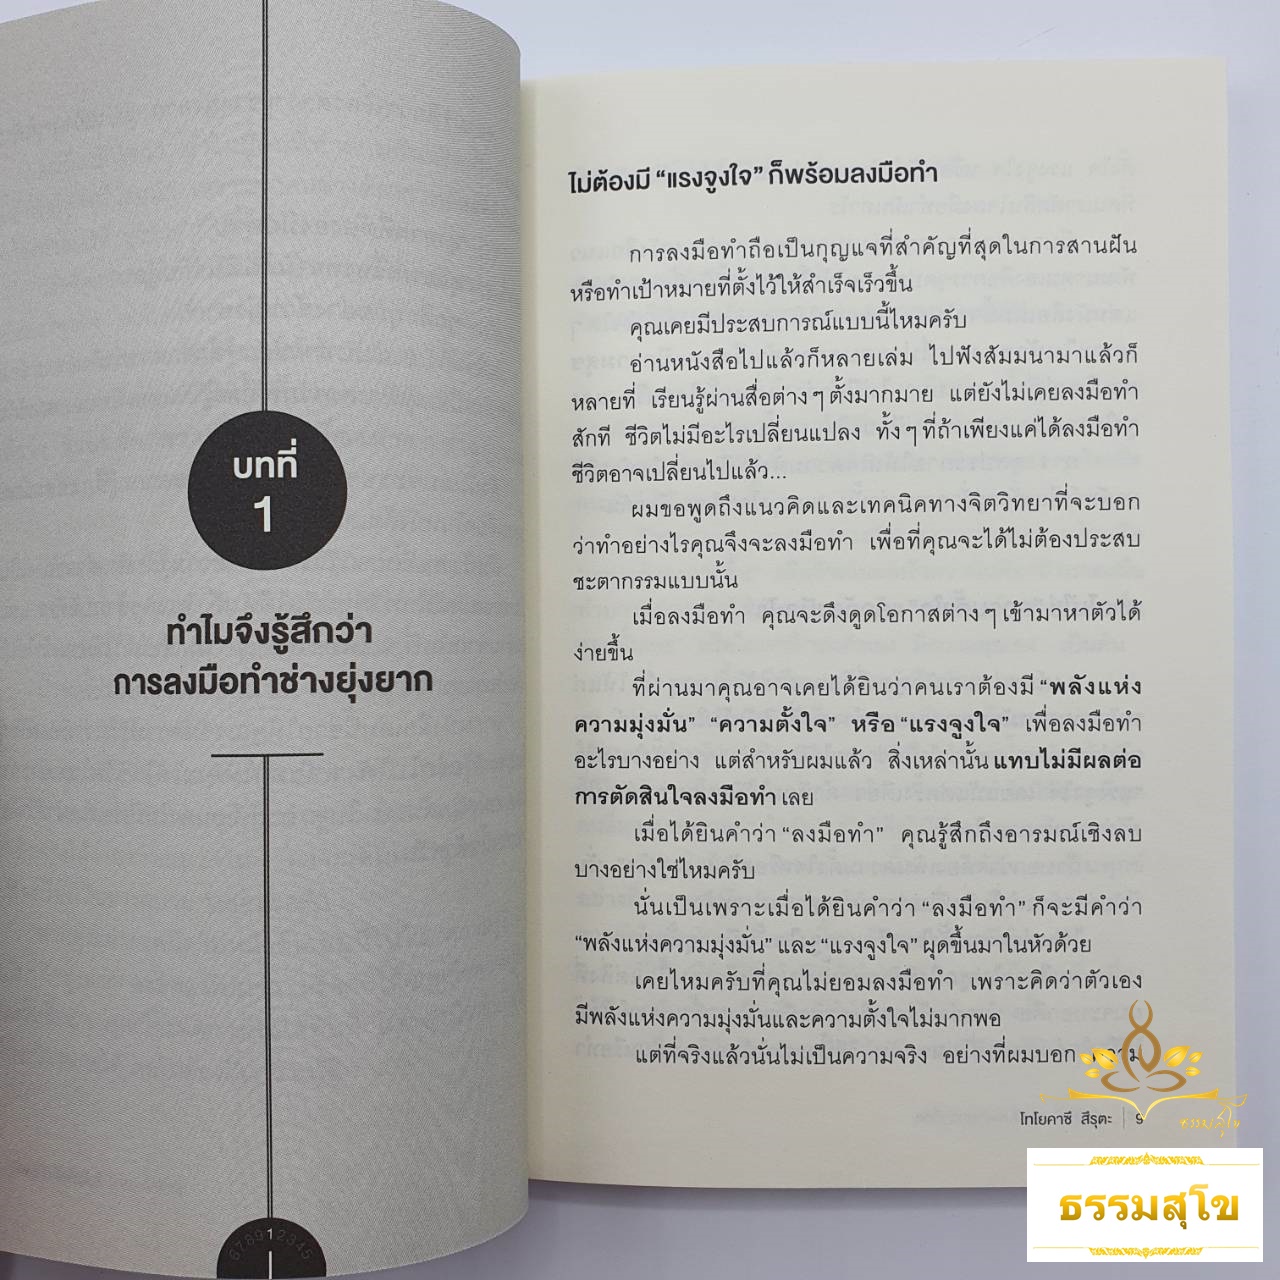 บทที่
1
ทำไมจึงรู้สึกว่า
การลงมือทำช่างยุ่งยาก
6789112345
ไม่ต้องมี “แรงจูงใจ” ก็พร้อมลงมือทำ
การลงมือทำถือเป็นกุญแจที่สำคัญที่สุดในการสานฝัน
หรือทำเป้าหมายที่ตั้งไว้ให้สำเร็จเร็วขึ้น
คุณเคยมีประสบการณ์แบบนี้ไหมครับ
อ่านหนังสือไปแล้วก็หลายเล่ม ไปฟังสัมมนามาแล้วก็
หลายที่ เรียนรู้ผ่านสื่อต่าง ๆ ตั้งมากมาย แต่ยังไม่เคยลงมือทำ
สักที ชีวิตไม่มีอะไรเปลี่ยนแปลง ทั้ง ๆ ที่ถ้าเพียงแค่ได้ลงมือทำ
ชีวิตอาจเปลี่ยนไปแล้ว...
ผมขอพูดถึงแนวคิดและเทคนิคทางจิตวิทยาที่จะบอก
ว่าทำอย่างไรคุณจึงจะลงมือทำ เพื่อที่คุณจะได้ไม่ต้องประสบ
ชะตากรรมแบบนั้น
เมื่อลงมือทำ คุณจะดึงดูดโอกาสต่าง ๆ เข้ามาหาตัวได้
ง่ายขึ้น
ที่ผ่านมาคุณอาจเคยได้ยินว่าคนเราต้องมี “พลังแห่ง
ความมุ่งมั่น” “ความตั้งใจ” หรือ “แรงจูงใจ” เพื่อลงมือทำ
อะไรบางอย่าง แต่สำหรับผมแล้ว สิ่งเหล่านั้นแทบไม่มีผลต่อ
การตัดสินใจลงมือทำเลย
เมื่อได้ยินคำว่า “ลงมือทำ” คุณรู้สึกถึงอารมณ์เชิงลบ
บางอย่างใช่ไหมครับ
นั่นเป็นเพราะเมื่อได้ยินคำว่า “ลงมือทำ” ก็จะมีคำว่า
“พลังแห่งความมุ่งมั่น” และ “แรงจูงใจ” ผุดขึ้นมาในหัวด้วย
เคยไหมครับที่คุณไม่ยอมลงมือทำ เพราะคิดว่าตัวเอง
มีพลังแห่งความมุ่งมั่นและความตั้งใจไม่มากพอ
แต่ที่จริงแล้วนั่นไม่เป็นความจริง อย่างที่ผมบอก ความ
โทโยคาซึ สึรุตะ | 9
ธรรมสุโข
ธรรมสุโข